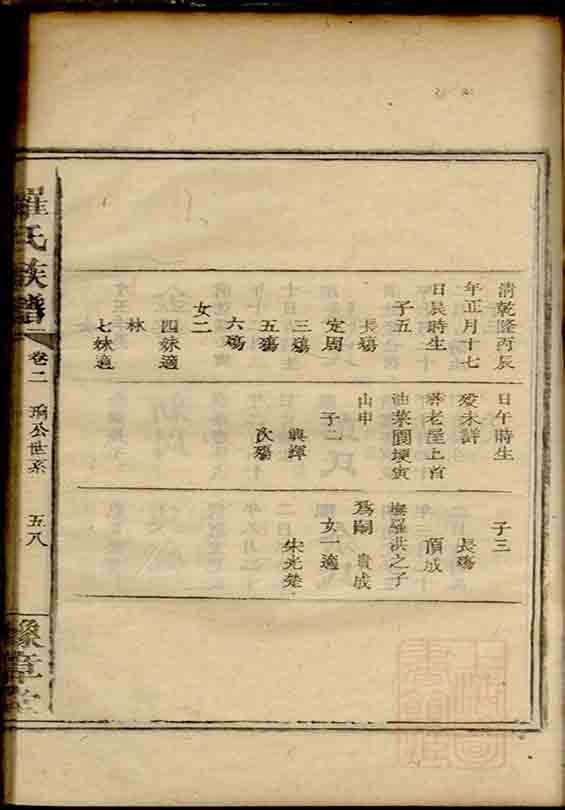 清乾隆丙辰
年正月十七
日辰時生
子五
長殤
定周
三殤
五殤
六殤
女二
四妹適
林
七妹適
日午時生
歿未詳
葬老屋上首
油菜園埂寅
山申
子二
興輝
次殤
子三
長殤
頂成
撫羅洪之子
爲嗣 貴成
女一適
朱光楚
羅氏族譜
卷二
公世系
五八
豫章堂